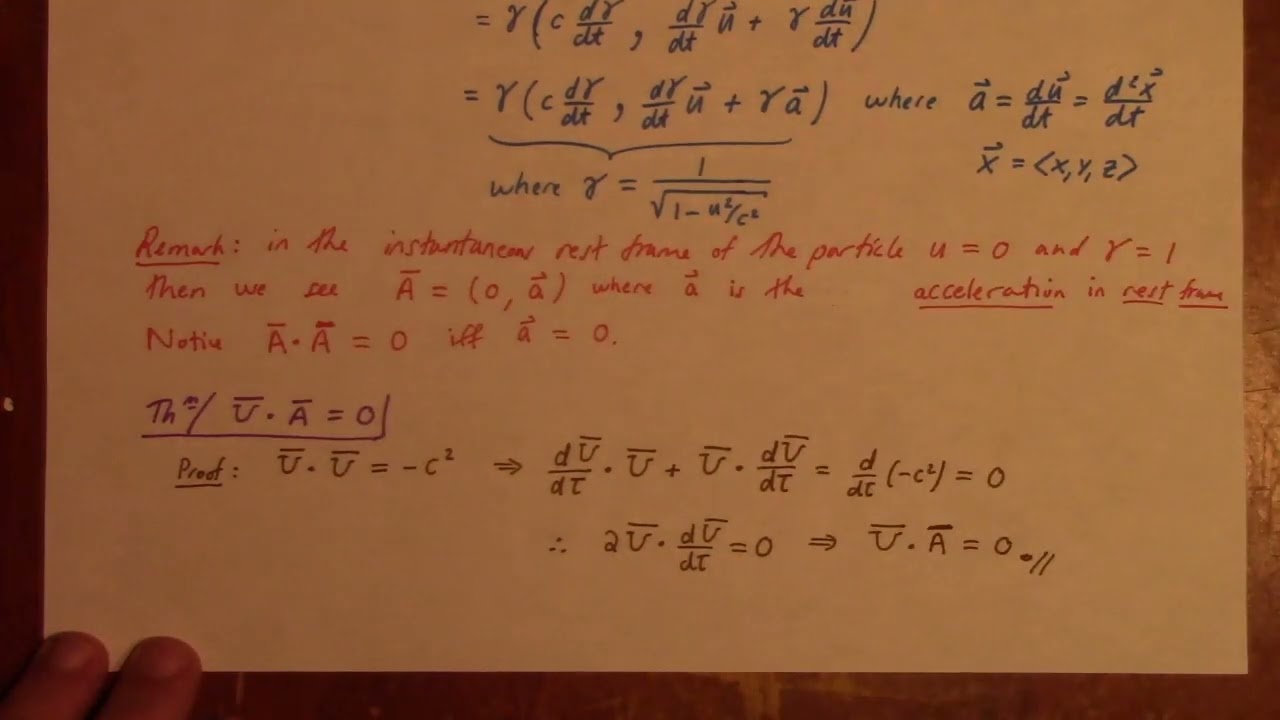 = γ(c dγ/dt , dγ/dt u⃗ + γ du⃗/dt)
= γ(c dγ/dt , dγ/dt u⃗ + γ a⃗) where a⃗ = du⃗/dt = d²x⃗/dt
where γ = 1/√(1 - u²/c²) x⃗ = <x, y, z>
Remark: in the instantaneous rest frame of the particle u = 0 and γ = 1
then we see A̅ = (0, a⃗) where a⃗ is the acceleration in rest frame
Notice A̅ · A̅ = 0 iff a⃗ = 0.
Thᵐ/ U̅ · A̅ = 0
Proof: U̅ · U̅ = -c² ⇒ dU̅/dτ · U̅ + U̅ · dU̅/dτ = d/dτ (-c²) = 0
∴ 2U̅ · dU̅/dτ = 0 ⇒ U̅ · A̅ = 0 .//